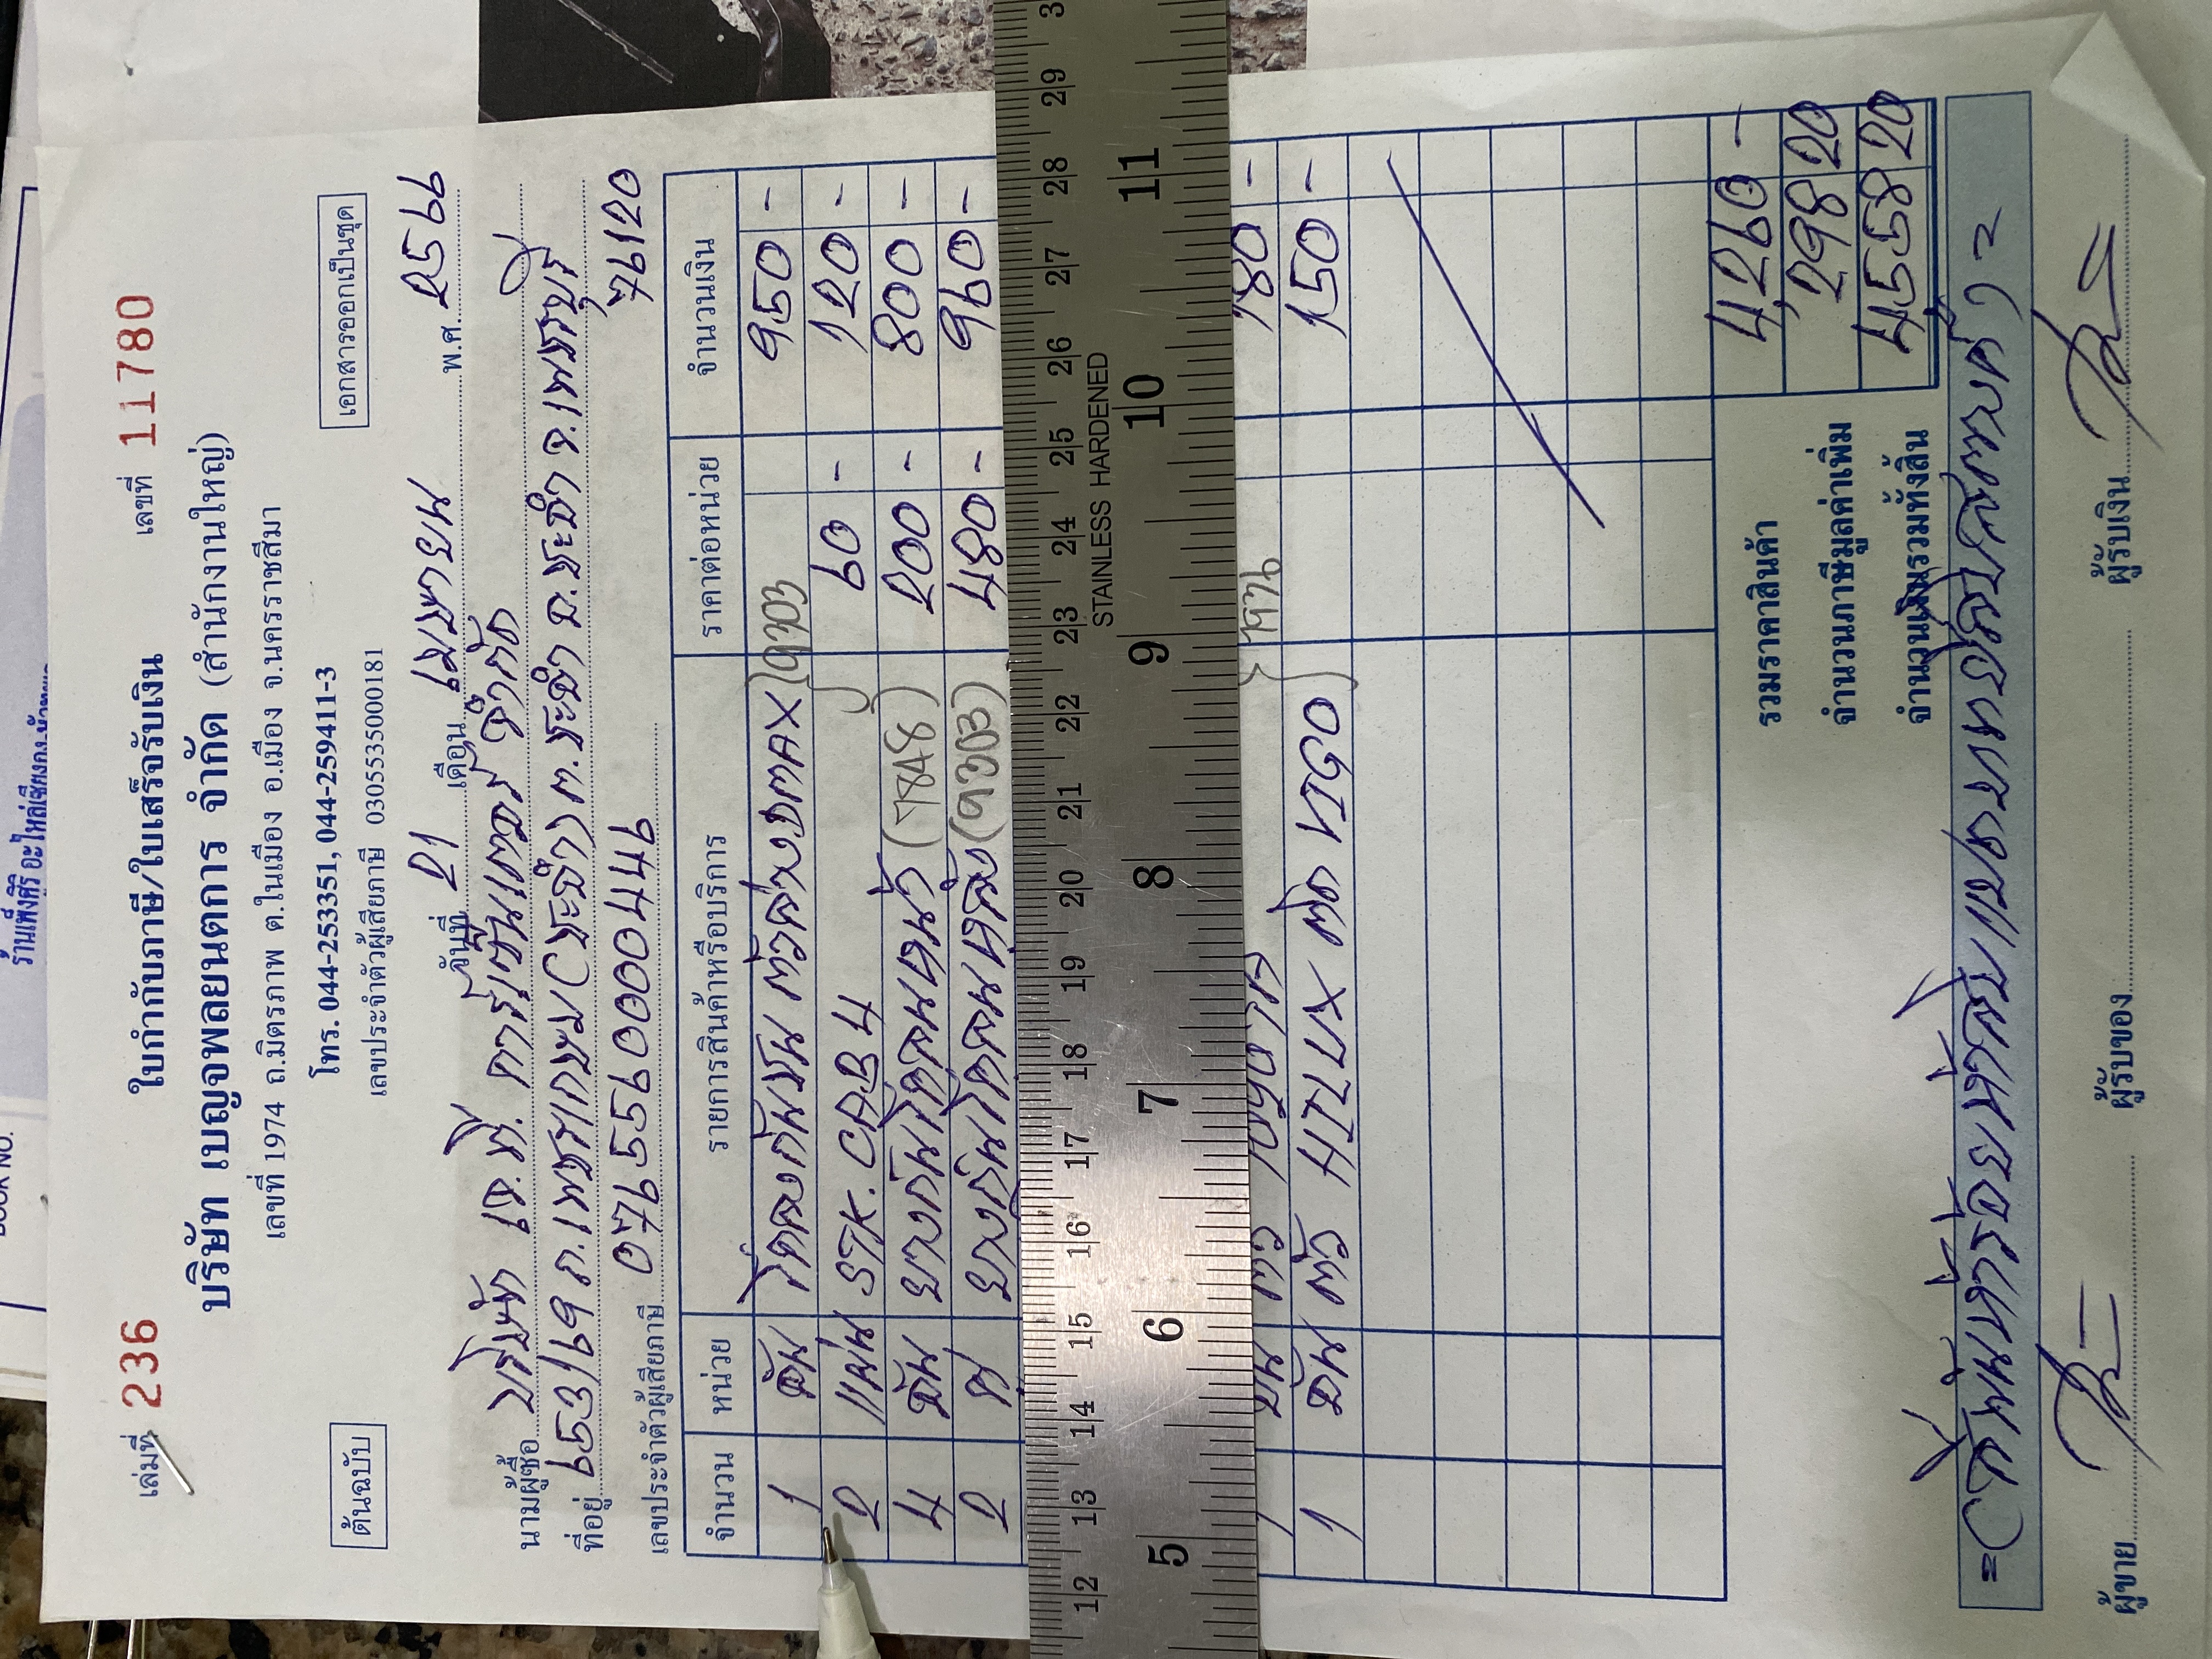 เล่มที่ 236 ใบกำกับภาษี/ใบเสร็จรับเงิน เลขที่ 11780
บริษัท เบญจพลยนตการ จำกัด (สำนักงานใหญ่)
เลขที่ 1974 ถ.มิตรภาพ ต.ในเมือง อ.เมือง จ.นครราชสีมา
ต้นฉบับ โทร. 044-253351, 044-259411-3 เอกสารออกเป็นชุด
เลขประจำตัวผู้เสียภาษี 0305535000181
วันที่ 21 เดือน เมษายน พ.ศ. 2569
นามผู้ซื้อ บริษัท เจ.ซี. คาร์เซ็นเตอร์ จำกัด
ที่อยู่ 953/69 ถ.เพชรเกษม (ชะอำ) ต.ชะอำ อ.ชะอำ จ.เพชรบุรี
เลขประจำตัวผู้เสียภาษี 0765590000449 76120
จำนวน หน่วย รายการสินค้าหรือบริการ ราคาต่อหน่วย จำนวนเงิน
1 อัน ตัวล่าง DMAX 950 -
2 แผ่น STK. CAB 4 60 - 120 -
4 อัน ยางกันโคลนหน้า (7848) 200 - 800 -
2 ยางกันโคลนหลัง (9303) 480 - 960 -
180 -
1 อัน HILUX VIGO 150 -
รวมราคาสินค้า 4,260 -
จำนวนภาษีมูลค่าเพิ่ม 298 20
จำนวนเงินรวมทั้งสิ้น 4558 20
=(สี่พันห้าร้อยห้าสิบแปดบาทยี่สิบสตางค์)=
ผู้ขาย ผู้รับของ ผู้รับเงิน
STAINLESS HARDENED
12 13 14 15 16 17 18 19 20 21 22 23 24 25 26 27 28 29 3
5 6 7 8 9 10 11